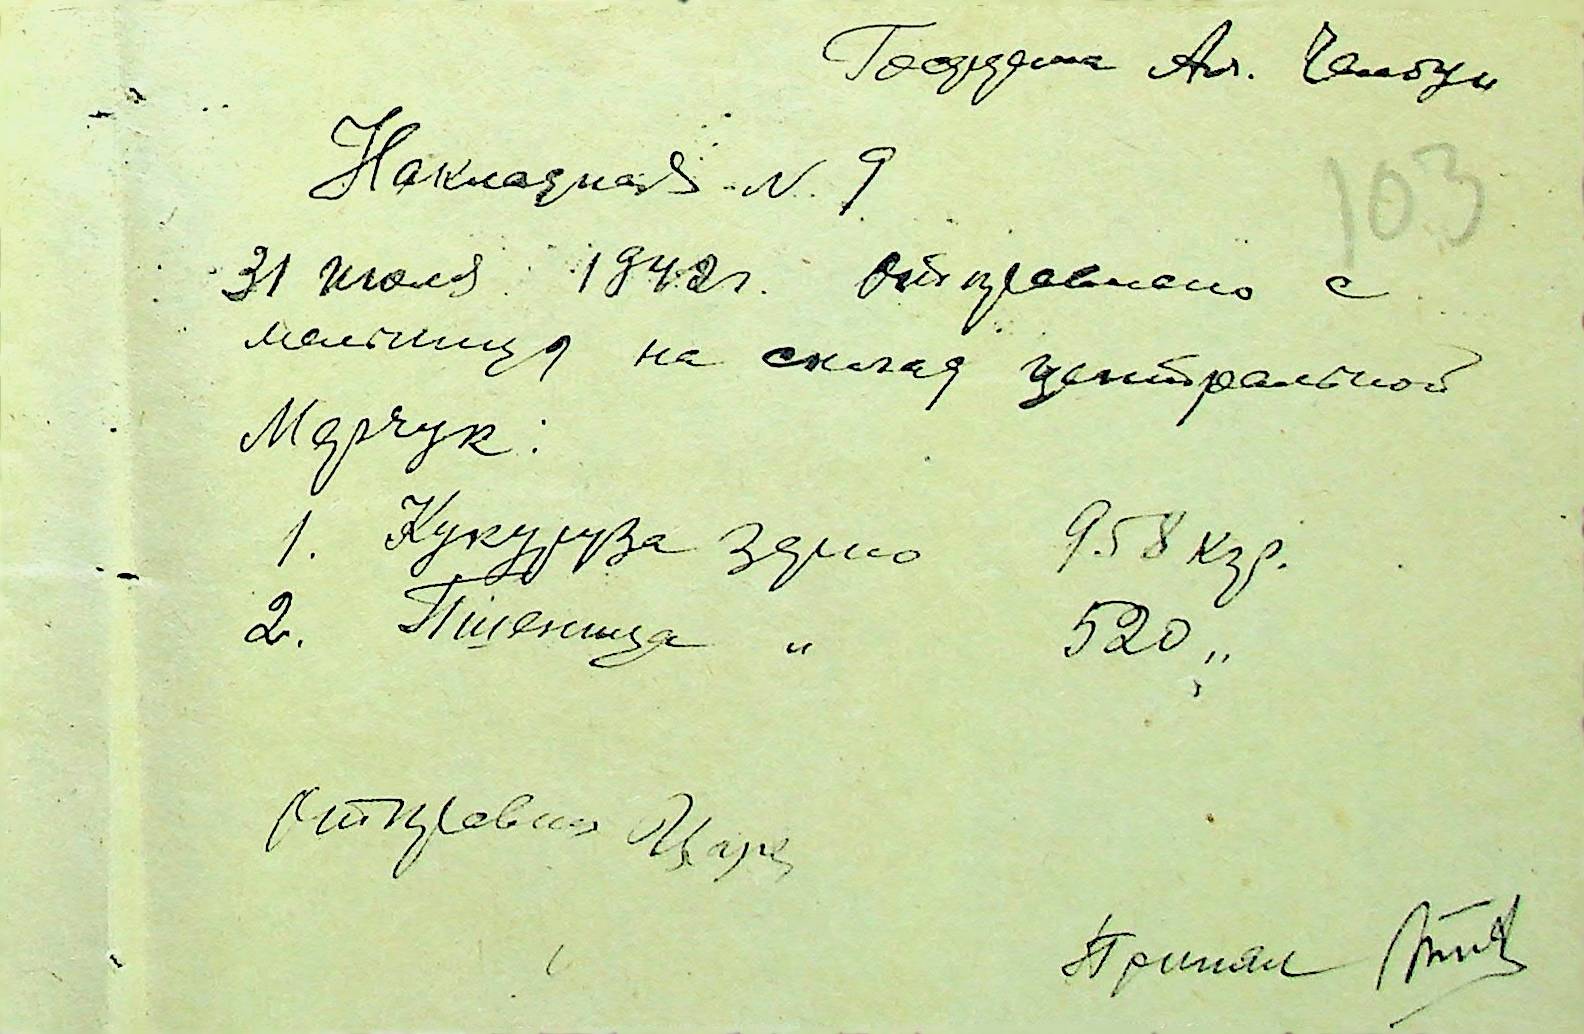 Ал.
103
Накладная N. 9
31 июля 1942г. Отправлено с
мельницы на склад центральной
Марчук:
1. Кукуруза зерно 958 кгр.
2. Пшеница " 520 "
Отправил
Принял